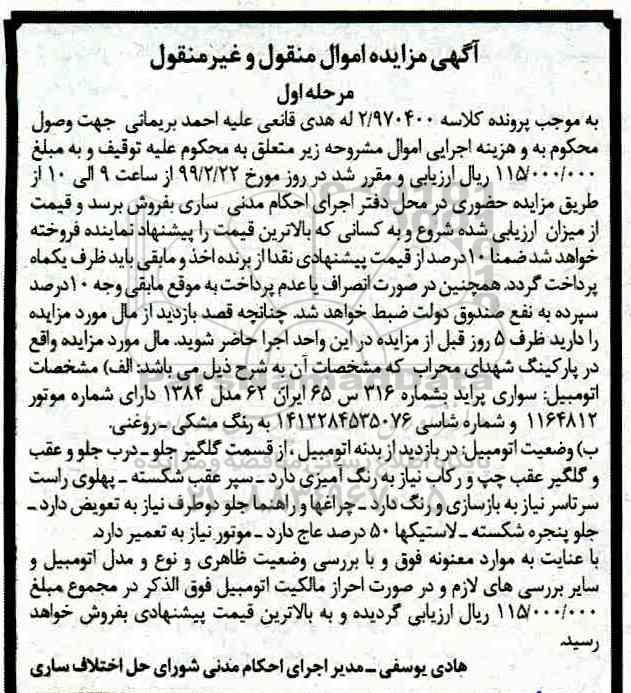 آگهی مزایده اموال منقول و غیرمنقول
مرحله اول
به موجب پرونده کلاسه ۲/۹۷۰۴۰۰ له هدی قانعی علیه احمد بریمانی جهت وصول
محکوم به و هزینه اجرایی اموال مشروحه زیر متعلق به محکوم علیه توقیف و به مبلغ
۱۱۵/۰۰۰/۰۰۰ ریال ارزیابی و مقرر شد در روز مورخ ۹۹/۲/۲۲ از ساعت ۹ الی ۱۰ از
طریق مزایده حضوری در محل دفتر اجرای احکام مدنی ساری بفروش برسد و قیمت
از میزان ارزیابی شده شروع و به کسانی که بالاترین قیمت را پیشنهاد نماینده فروخته
خواهد شد ضمنا ۱۰درصد از قیمت پیشنهادی نقدا از برنده اخذ و مابقی باید ظرف یکماه
پرداخت گردد. همچنین در صورت انصراف یا عدم پرداخت به موقع مابقی وجه ۱۰درصد
سپرده به نفع صندوق دولت ضبط خواهد شد. چنانچه قصد بازدید از مال مورد مزایده
را دارید ظرف ۵ روز قبل از مزایده در این واحد اجرا حاضر شوید. مال مورد مزایده واقع
در پارکینگ شهدای محراب که مشخصات آن به شرح ذیل می باشد: الف) مشخصات
اتومبیل: سواری پراید بشماره ۳۱۶ س ۶۵ ایران ۶۲ مدل ۱۳۸۴ دارای شماره موتور
۱۱۶۴۸۱۲ و شماره شاسی ۱۴۱۲۲۸۴۵۳۵۰۷۶ به رنگ مشکی ـ روغنی.
ب) وضعیت اتومبیل: در بازدید از بدنه اتومبیل ، از قسمت گلگیر جلو ـ درب جلو و عقب
و گلگیر عقب چپ و رکاب نیاز به رنگ آمیزی دارد ـ سپر عقب شکسته ـ پهلوی راست
سرتاسر نیاز به بازسازی و رنگ دارد ـ چراغها و راهنما جلو دوطرف نیاز به تعویض دارد ـ
جلو پنجره شکسته ـ لاستیکها ۵۰ درصد عاج دارد ـ موتور نیاز به تعمیر دارد.
با عنایت به موارد معنونه فوق و با بررسی وضعیت ظاهری و نوع و مدل اتومبیل و
سایر بررسی های لازم و در صورت احراز مالکیت اتومبیل فوق الذکر در مجموع مبلغ
۱۱۵/۰۰۰/۰۰۰ ریال ارزیابی گردیده و به بالاترین قیمت پیشنهادی بفروش خواهد
رسید.
هادی یوسفی ـ مدیر اجرای احکام مدنی شورای حل اختلاف ساری